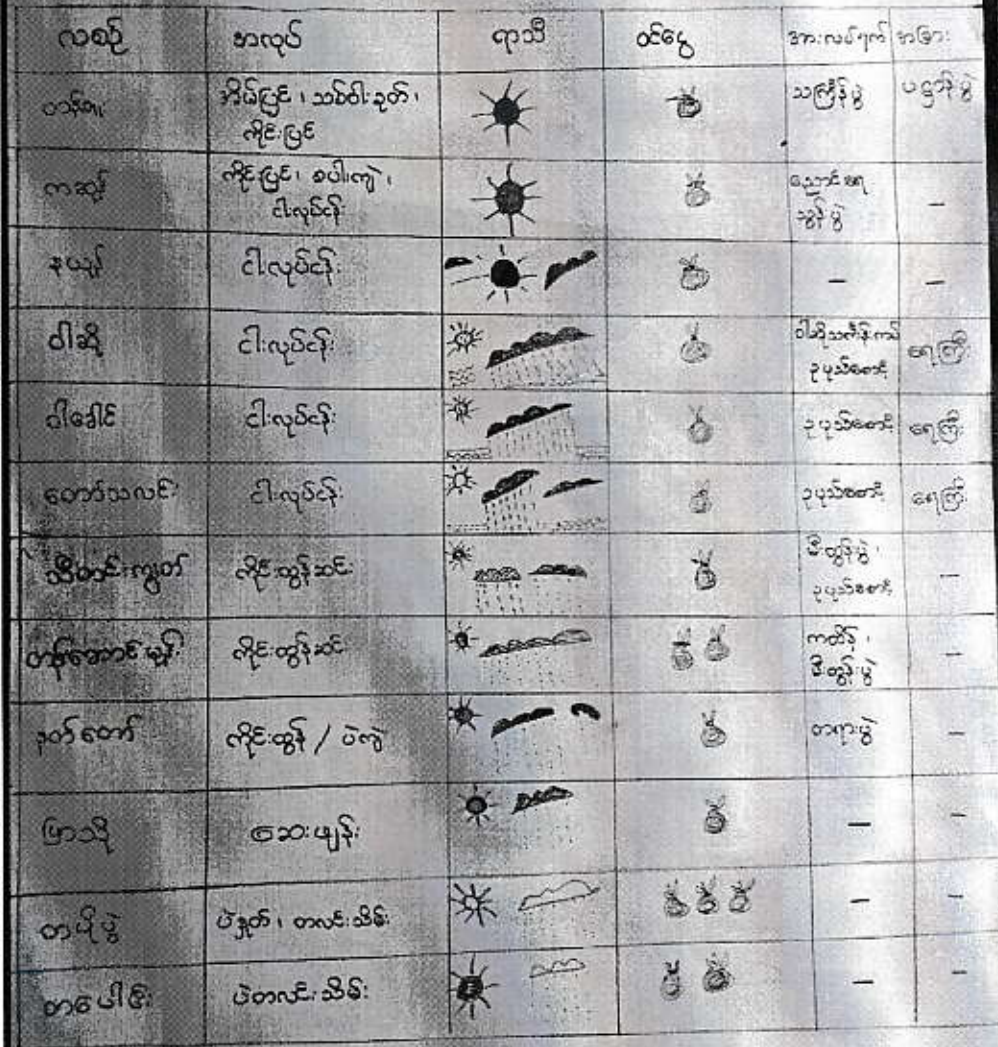 လစဉ် အလုပ် ရာသီ ဝင်ငွေ အားလပ်ရက် အခြား
တန်ခူး အိမ်ပြင်၊ သစ်ဝါးခုတ်၊ သင်္ကြန်ပွဲ ပဋ္ဌာန်းပွဲ
ကိုင်းပြင်
ကဆုန် ကိုင်းပြင်၊ စပါးကျဲ၊ ညောင်ရေ
ငါးလုပ်ငန်း သွန်းပွဲ –
နယုန် ငါးလုပ်ငန်း – –
ဝါဆို ငါးလုပ်ငန်း ဝါဆိုသင်္ကန်းကပ် ရေကြီး
ဥပုသ်စောင့်
ဝါခေါင် ငါးလုပ်ငန်း ဥပုသ်စောင့် ရေကြီး
တော်သလင်း ငါးလုပ်ငန်း ဥပုသ်စောင့် ရေကြီး
သီတင်းကျွတ် ကိုင်းထွန်ဆင်း မီးထွန်းပွဲ၊ –
ဥပုသ်စောင့်
တန်ဆောင်မုန်း ကိုင်းထွန်ဆင်း ကထိန်၊ –
မီးထွန်းပွဲ
နတ်တော် ကိုင်းထွန် / ပဲကျဲ တရားပွဲ –
ပြာသို ဆေးဖျန်း – –
တပို့တွဲ ပဲနှုတ်၊ တလင်းသိမ်း – –
တပေါင်း ပဲတလင်းသိမ်း – –